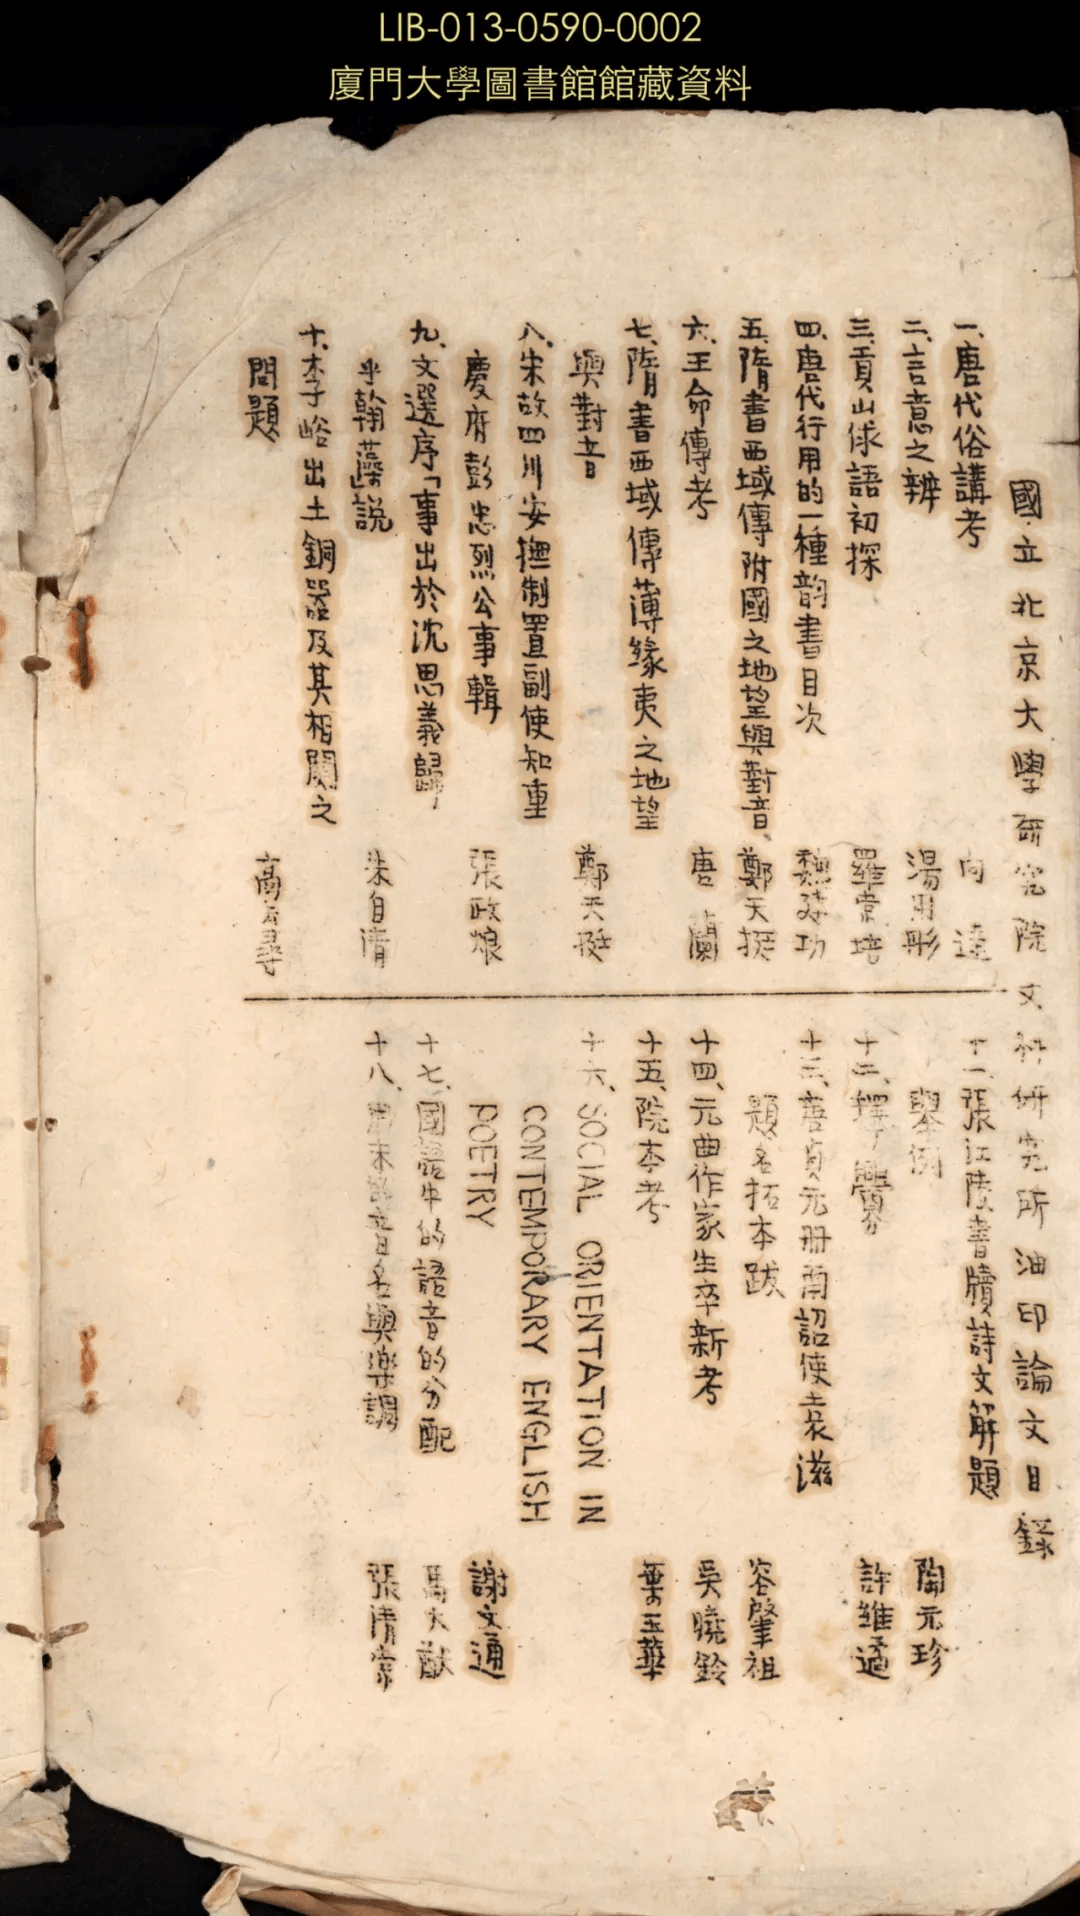 LIB-013-0590-0002
廈門大學圖書館館藏資料
國立北京大學研究院文科研究所油印論文目錄
一、唐代俗講考 向達
二、言意之辨 湯用彤
三、貢山俅語初探 羅常培
四、唐代行用的一種韵書目次 魏建功
五、隋書西域傳附國之地望與對音、 鄭天挺
六、王命傳考 唐蘭
七、隋書西域傳薄緣夷之地望
與對音 鄭天挺
八、宋故四川安撫制置副使知重
慶府彭忠烈公事輯 張政烺
九、文選序「事出於沈思義歸
乎翰藻說 朱自清
十、李峪出土銅器及其相關之
問題 高去尋
十一、張江陵書牘詩文解題
舉例 陶元珍
十二、釋釁 許維遹
十三、唐貞元册南詔使袁滋
題名拓本跋 容肇祖
十四、元曲作家生卒新考 吳曉鈴
十五、院本考 葉玉華
十六、SOCIAL ORIENTATION IN
CONTEMPORARY ENGLISH
POETRY 謝文通
十七、國語中的語音的分配 馬大猷
十八、周末音名與樂調 張清常